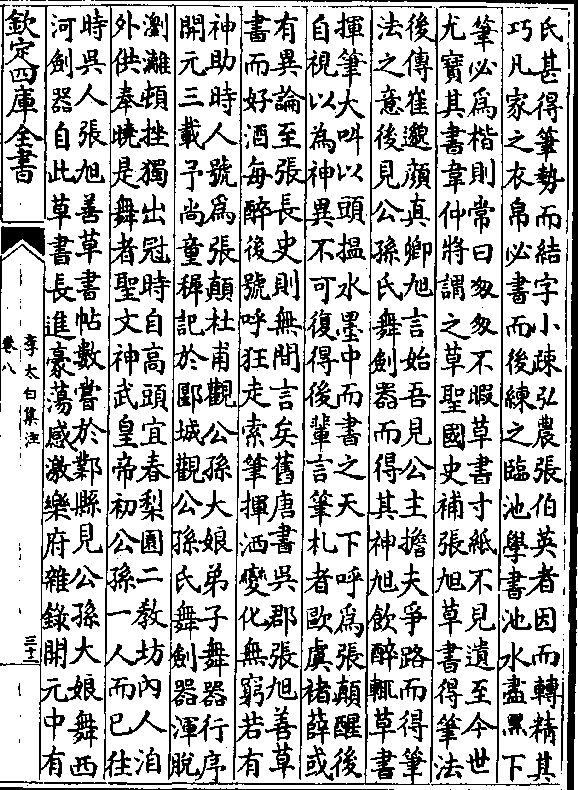 氏甚得筆勢而結字小疎弘農張伯英者因而轉精其
巧凡家之衣帛必書而後練之臨池學書池水盡黑下
筆必爲楷則常曰匆匆不暇草書寸紙不見遺至今世
尤寳其書韋仲將謂之草聖國史補張旭草書得筆法
後傳崔邈顔真卿旭言始吾見公主擔夫爭路而得筆
法之意後見公孫氏舞劍器而得其神旭飲醉輒草書
揮筆大叫以頭搵水墨中而書之天下呼爲張顛醒後
自視以為神異不可復得後輩言筆札者歐虞褚薛或
有異論至張長史則無間言矣舊唐書吳郡張旭善草
書而好酒每醉後號呼狂走索筆揮洒變化無窮若有
神助時人號爲張顛杜甫觀公孫大娘弟子舞器行序
開元三載予尚童穉記於郾城觀公孫氏舞劍器渾脫
瀏灕頓挫獨出冠時自高頭宜春梨園二教坊內人洎
外供奉曉是舞者聖文神武皇帝初公孫一人而已往
時吳人張旭善草書帖數嘗於鄴縣見公孫大娘舞西
河劍器自此草書長進豪蕩感激樂府雜錄開元中有
欽定四庫全書
李太白集注
卷八